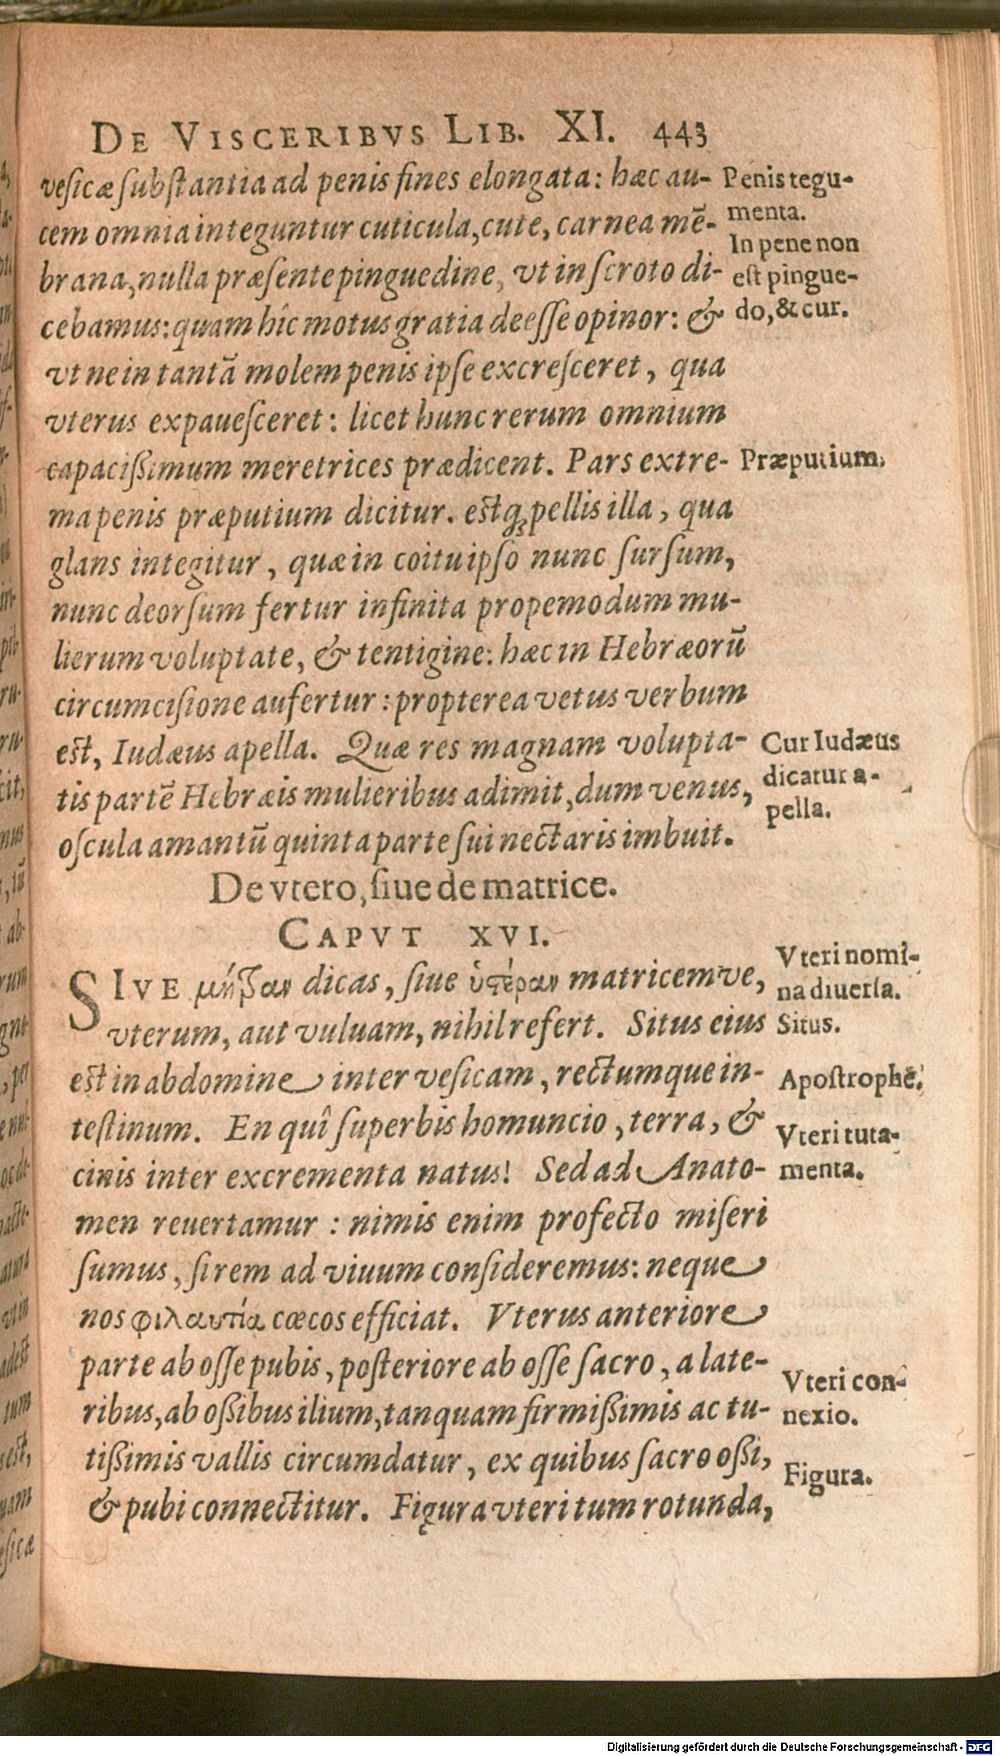 DE VISCERIBVS LIB. XI. 443
vesicæ substantia ad penis fines elongata: hæc au-
tem omnia integuntur cuticula, cute, carnea mē-
brana, nulla præsente pinguedine, vt in scroto di-
cebamus: quam hîc motus gratia deesse opinor: &
vt ne in tantā molem penis ipse excresceret, qua
vterus expauesceret: licet hunc rerum omnium
capacißimum meretrices prædicent. Pars extre-
ma penis præputium dicitur. estq́; pellis illa, qua
glans integitur, quæ in coitu ipso nunc sursum,
nunc deorsum fertur infinita propemodum mu-
lierum voluptate, & tentigine: hæc in Hebræorū
circumcisione aufertur: propterea vetus verbum
est, Iudæus apella. Quæ res magnam volupta-
tis partē Hebræis mulieribus adimit, dum venus,
oscula amantū quinta parte sui nectaris imbuit.
De vtero, siue de matrice.
CAPVT XVI.
SIVE μήτραν dicas, siue ὑστέραν matricemve,
vterum, aut vuluam, nihil refert. Situs eius
est in abdomine inter vesicam, rectumque in-
testinum. En quî superbis homuncio, terra, &
cinis inter excrementa natus! Sed ad Anato-
men reuertamur: nimis enim profecto miseri
sumus, si rem ad viuum consideremus: neque
nos φιλαυτία cœcos efficiat. Vterus anteriore
parte ab osse pubis, posteriore ab osse sacro, a late-
ribus, ab oßibus ilium, tanquam firmißimis ac tu-
tißimis vallis circumdatur, ex quibus sacro oßi,
& pubi connectitur. Figura vteri tum rotunda,
Penis tegu-
menta.
In pene non
est pingue-
do, & cur.
Præputium.
Cur Iudæus
dicatur a-
pella.
Vteri nomi-
na diuersa.
Situs.
Apostrophe.
Vteri tuta-
menta.
Vteri con-
nexio.
Figura.
Digitalisierung gefördert durch die Deutsche Forschungsgemeinschaft - DFG